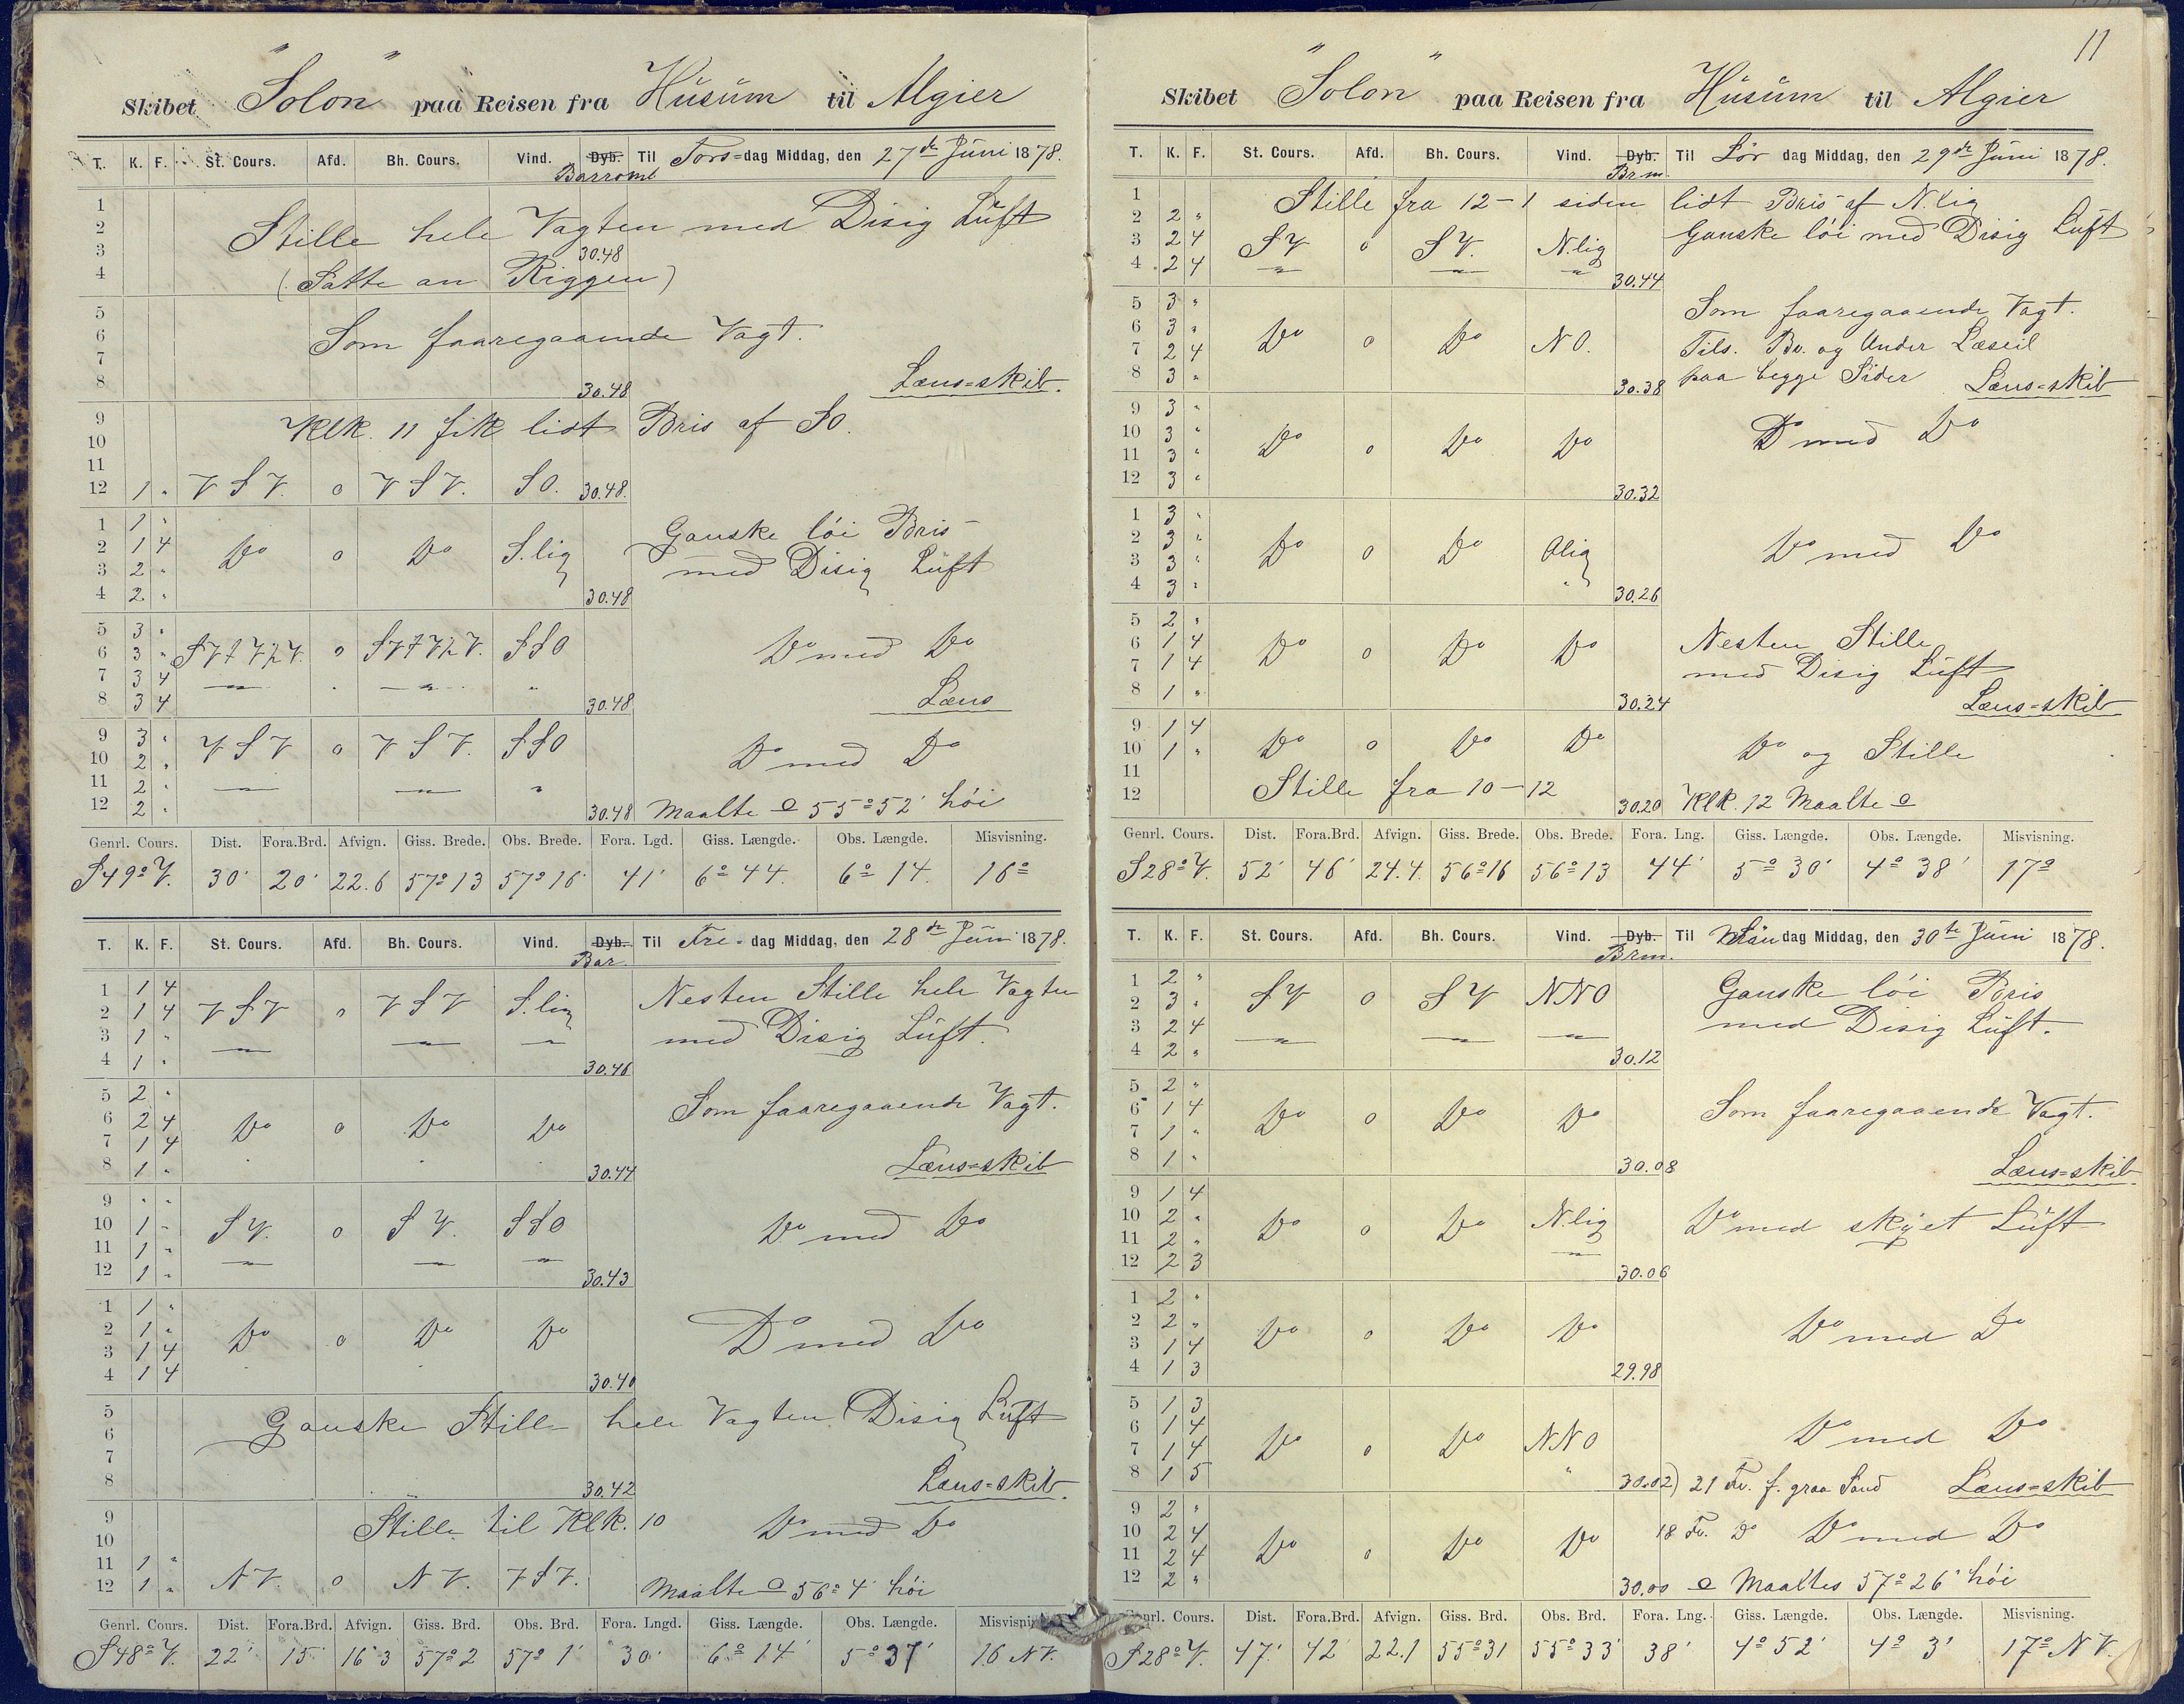 Skibet "Solon" paa Reisen fra Hüsüm til Algier
T. K. F. St. Cours. Afd. Bh. Cours. Vind. Dyb. Barromt Til Tors=dag Middag, den 27de Jüni 1878.
1
2 Stille hele Vagten med Disig Lüft
3 30.48
4 (Satte an Riggen)
5
6 Som faaregaaende Vagt.
7
8 30.48 Læns=skib.
9 Klk. 11 fik lidt Bris af SO.
10
11
12 1 " V S V. 0 V S V. SO. 30.48.
1 1 " Ganske löi Bris
2 1 4 Do 0 Do S.lig
3 2 " med Disig Lüft
4 2 " 30.48
5 3 "
6 3 " SVtV½V. 0 SVtV½V. SSO Do med Do
7 3 4 " " "
8 3 4 30.48 Læns
9 3 " V S V 0 V S V. SSO
10 2 " Do med Do
11 2 " " " "
12 2 " 30.48 Maalte ⊙ 55° 52' höi
Genrl. Cours. Dist. Fora.Brd. Afvign. Giss. Brede. Obs. Brede. Fora. Lgd. Giss. Længde. Obs. Længde. Misvisning.
S49°V. 30' 20' 22.6 57°13 57°16' 41' 6° 44. 6° 14. 16°
T. K. F. St. Cours. Afd. Bh. Cours. Vind. Dyb. Bar. Til Fre=dag Middag, den 28de Jüni 1878.
1 1 4 Nesten Stille hele Vagten
2 1 4 V S V 0 V S V S.lig
3 1 " " " " med Disig Lüft.
4 1 " 30.46
5 2 "
6 2 4 Do 0 Do Do Som faaregaaende Vagt.
7 1 4
8 1 " 30.44 Læns=skib
9 " "
10 1 " S V. 0 S V. SSO Do med Do
11 1 " " " "
12 1 " 30.43
1 1 "
2 1 " Do 0 Do Do Do med Do
3 1 4
4 1 4 30.40
5 Ganske Stille hele Vagten Disig Lüft
6
7
8 30.42 Læns=skib.
9 Stille til Klk. 10 Do med Do
10
11 1 "
12 1 " N V. 0 N V. V S V. Maalte ⊙ 56° 4' höi
Genrl. Cours. Dist. Fora.Brd. Afvign. Giss. Brd. Obs. Brd. Fora. Lngd. Giss. Længde. Obs. Længde. Misvisning
S48°V. 22' 15' 16 3 57°2 57° 1' 30' 6° 14' 5° 37' 16 NV.
11
Skibet "Solon" paa Reisen fra Hüsüm til Algier
T. K. F. St. Cours. Afd. Bh. Cours. Vind. Dyb. Brm. Til Lör dag Middag, den 29de Jüni 1878.
1 Stille fra 12-1 siden lidt Bris af N.lig
2 2 "
3 2 4 S V 0 S V. N.lig Ganske löi med Disig Lüft
4 2 4 " " " 30.44
5 3 " Som faaregaaende Vagt.
6 3 " Do 0 Do NO.
7 2 4 Tils. Bv. og Under Læseil
8 3 " 30.38 paa begge Sider Læns=skib
9 3 "
10 3 " Do 0 Do Do Do med Do
11 3 "
12 3 " 30.32
1 3 "
2 3 " Do 0 Do Olig Do med Do
3 3 "
4 3 " 30.26
5 2 "
6 1 4 Do 0 Do Do Nesten Stille
7 1 4 med Disig Lüft
8 1 " 30.24 Læns=skib
9 1 4
10 1 " Do 0 Do Do Do og Stille
11
12 Stille fra 10-12 30.20 Klk. 12 Maalte ⊙
Genrl. Cours. Dist. Fora.Brd. Afvign. Giss. Brede. Obs. Brede. Fora. Lng. Giss. Længde. Obs. Længde. Misvisning.
S28°V. 52' 46' 24.4. 56°16 56°13 44' 5° 30' 4° 38' 17°
T. K. F. St. Cours. Afd. Bh. Cours. Vind. Dyb. Brm. Til Sön dag Middag, den 30te Jüni 1878.
1 2 " Ganske löi Bris
2 3 " S V 0 S V NNO
3 2 4 " " " med Disig Lüft.
4 2 " 30.12
5 2 "
6 1 4 Do 0 Do Do Som faaregaaende Vagt.
7 1 "
8 1 " 30.08 Læns=skib.
9 1 4
10 2 " Do 0 Do N.lig Do med skÿet Lüft
11 2 " "
12 2 3 30.06
1 2 "
2 2 " Do 0 Do Do Do med Do
3 1 4
4 1 3 29.98
5 1 3
6 1 4 Do 0 Do NNO Do med Do
7 1 4
8 1 5 " 30.02) 21 Fv. f. graa Sand Læns=skib
9 2 "
10 2 4 Do 0 Do Do 18 Fv. Do Do med Do
11 2 4
12 2 " 30.00 ⊙ Maaltes 57° 26' höi
Genrl. Cours. Dist. Fora.Brd. Afvign. Giss. Brd. Obs. Brd. Fora. Lng. Giss. Længde. Obs. Længde. Misvisning.
S28°V. 47' 42' 22.1 55°31 55°33' 38' 4° 52' 4° 3' 17° NV.